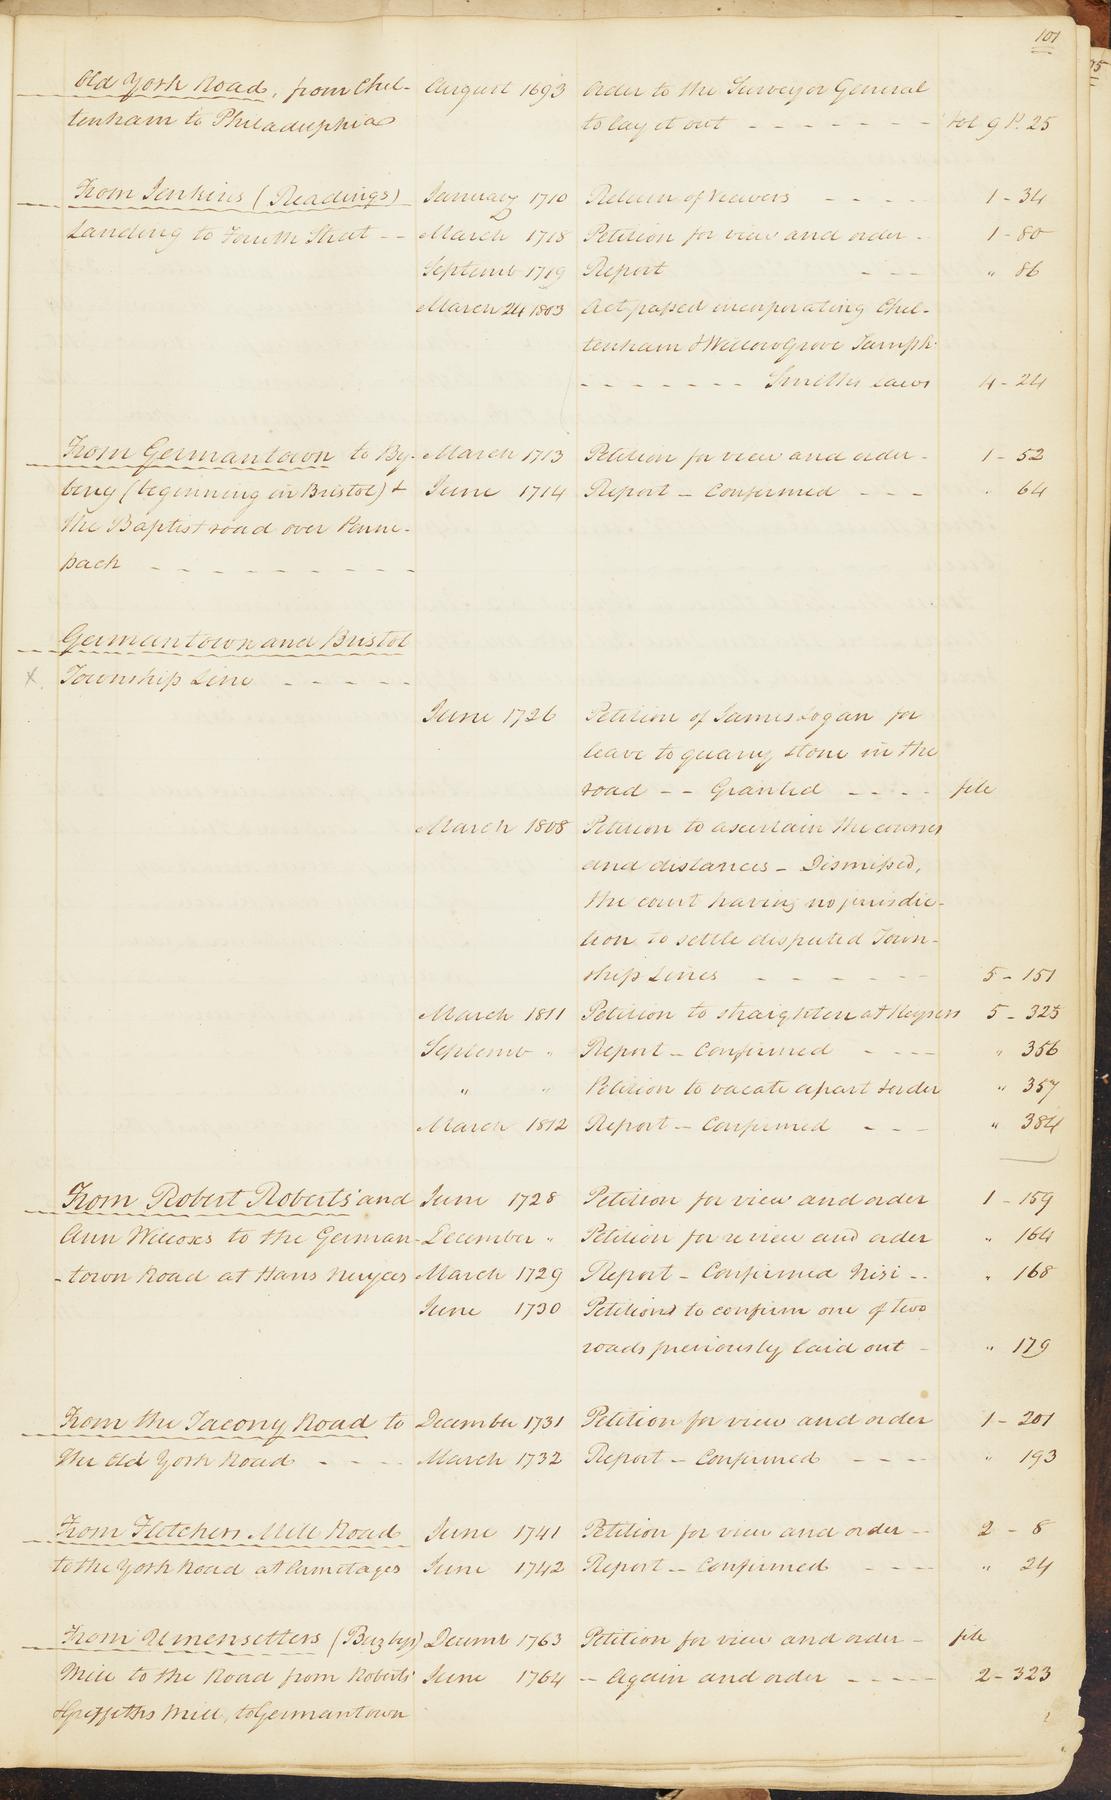 101
Old York Road, from Chel- August 1693 Order to the Surveyor General
tenham to Philadelphia to lay it out - - - - - - - Vol 9 P. 25
From Jenkins (Readings) January 1710 Return of Viewers - - - - 1 - 34
Landing to Fourth Street - - March 1718 Petition for view and order - 1 - 80
Septemb 1719 Report - - - " 86
March 24 1803 Act passed incorporating Chel-
tenham & Willow Grove Turnpk
- - - - - - - Smiths Laws 4 - 24
From Germantown to By- March 1713 Petition for view and order - 1 - 52
bery (beginning in Bristol) & June 1714 Report - Confirmed - - - " 64
the Baptist road over Penne-
pack - - - - - - - - - -
Germantown and Bristol
x Township Line - - - - -
June 1726 Petition of James Logan for
leave to quarry stone in the
road - - Granted - - - - file
March 1808 Petition to ascertain the courses
and distances - Dismissed,
the court having no jurisdic-
tion to settle disputed Town-
ship Lines - - - - - - 5 - 151
March 1811 Petition to straighten at Keysers 5 - 325
Septemb " Report - Confirmed - - - - " 356
" " Petition to vacate a part & order " 357
March 1812 Report - Confirmed - - - " 384
From Robert Roberts' and June 1728 Petition for view and order 1 - 159
Ann Wilcoxs to the German- December " Petition for review and order " 164
-town Road at Hans March 1729 Report - Confirmed Nisi - - " 168
June 1730 Petitions to confirm one of two
roads previously laid out - " 179
From the Tacony Road to December 1731 Petition for view and order 1 - 201
the Old York Road - - - - March 1732 Report - Confirmed - - - - " 193
From Fletchers Mill Road June 1741 Petition for view and order - - 2 - 8
to the York Road at Armotages June 1742 Report - Confirmed - - - - " 24
From Umensetters (Buzbys) Decemr 1763 Petition for view and order - file
Mill to the Road from Roberts' June 1764 - Again and order - - - - 2 - 323
& Griffiths Mill, to Germantown